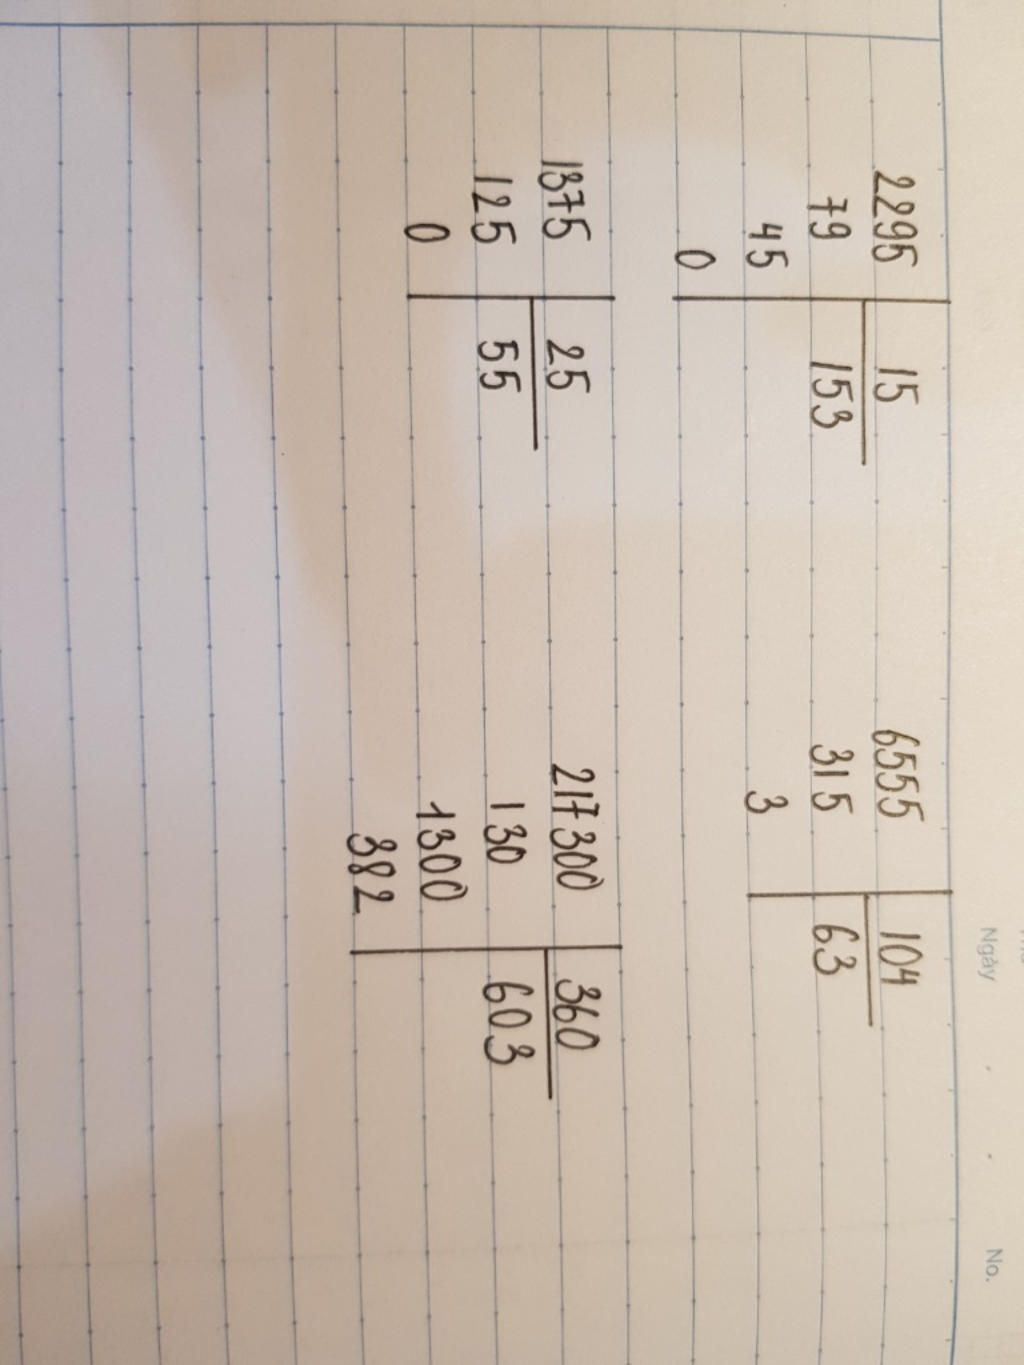 Ngày . . No.
2295 15 6555 104
79 153 315 63
45 3
0
1375 25 217300 360
125 55 130 603
0 1300
382